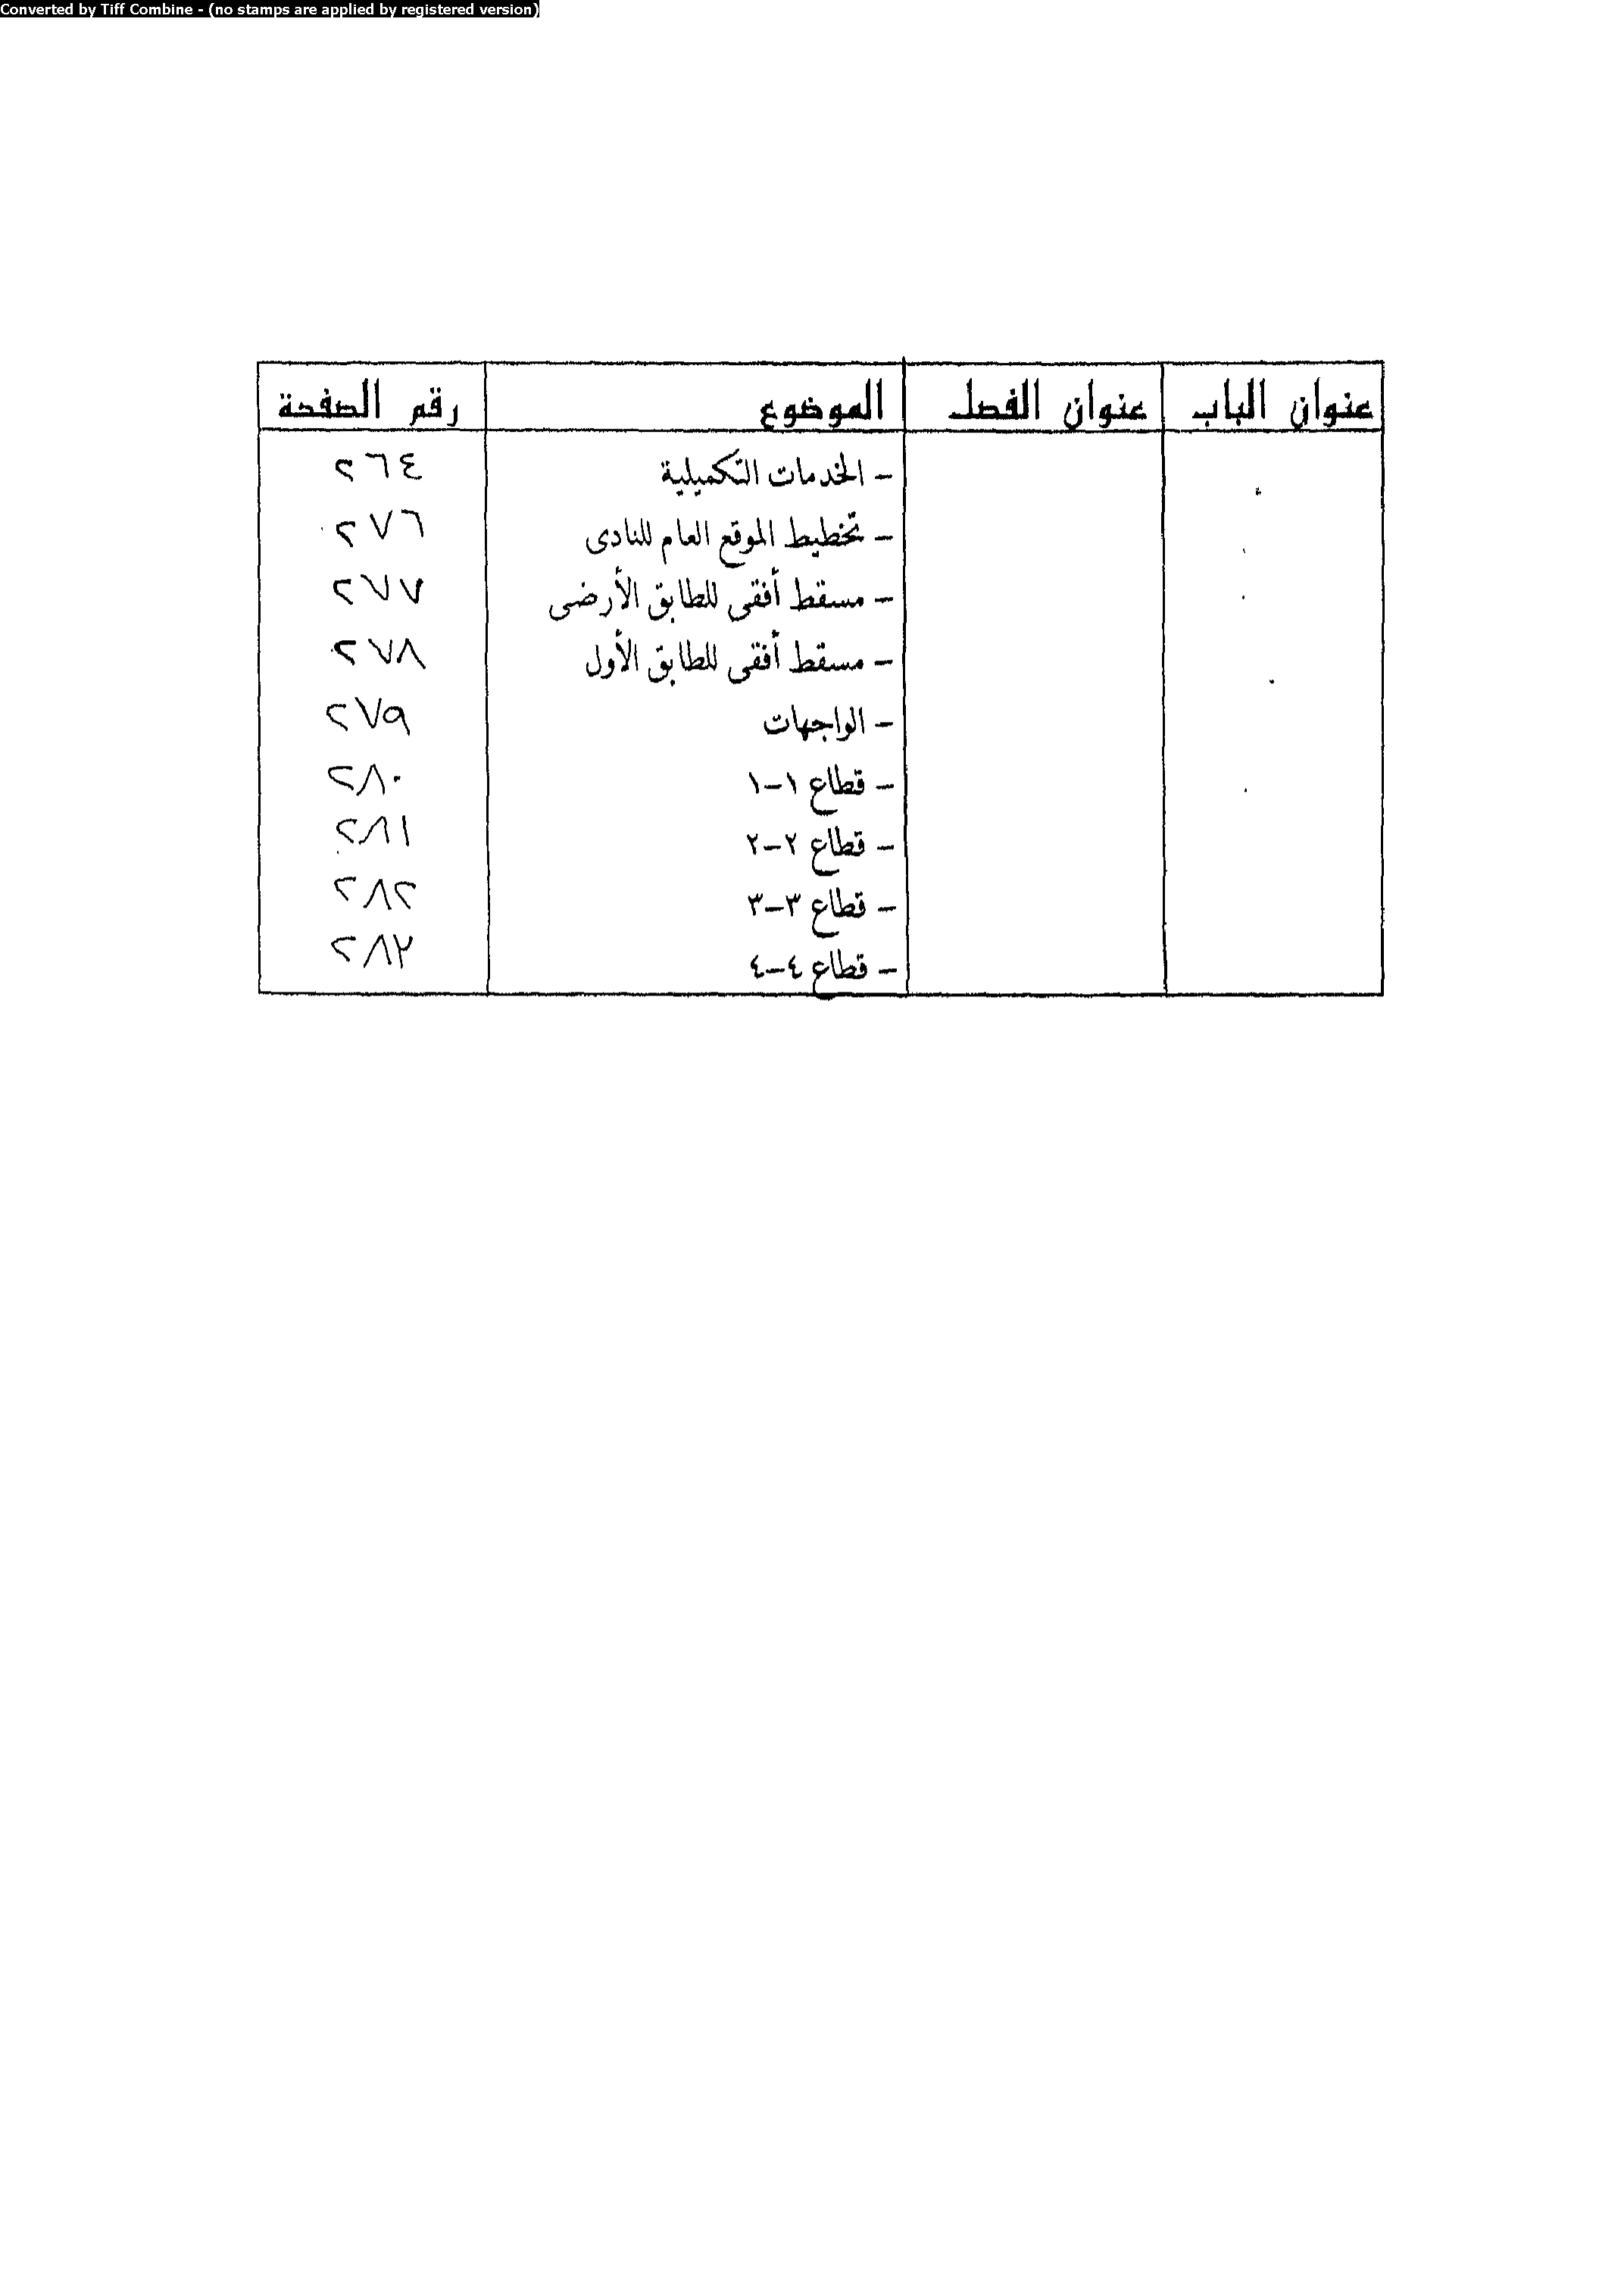 Converted by Tiff Combine - (no stamps are applied by registered version)
عنوان الباب عنوان الفصل الموضوع رقم الصفحة
- الخدمات التكميلية ٢٦٤
- تخطيط الموقع العام للنادى ٢٧٦
- مسقط أفقى للطابق الأرضى ٢٧٧
- مسقط أفقى للطابق الأول ٢٧٨
- الواجهات ٢٧٩
- قطاع ١-١ ٢٨٠
- قطاع ٢-٢ ٢٨١
- قطاع ٣-٣ ٢٨٢
- قطاع ٤-٤ ٢٨٣